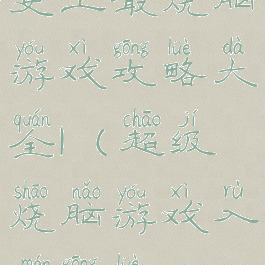 上最烧脑
yóu xì gōng lüè dà
游戏攻略大
quán chāo jí
全|(超级
shāo nǎo yóu xì rù
烧脑游戏入
mén gōng lüè